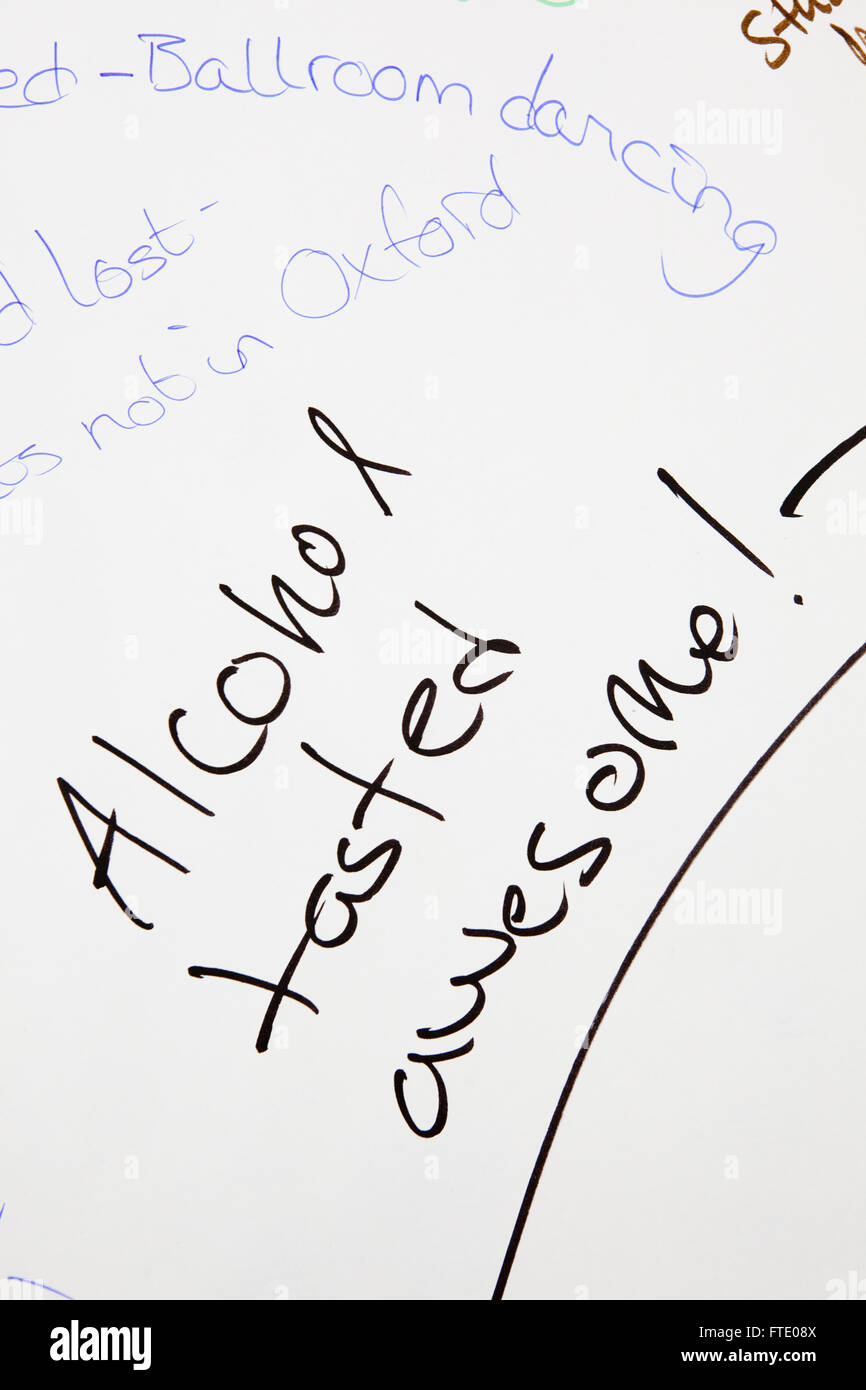 -Ballroom dancing
lost-
not in Oxford
Alcohol
tasted
awesome!
alamy
Image ID: FTE08X
www.alamy.com